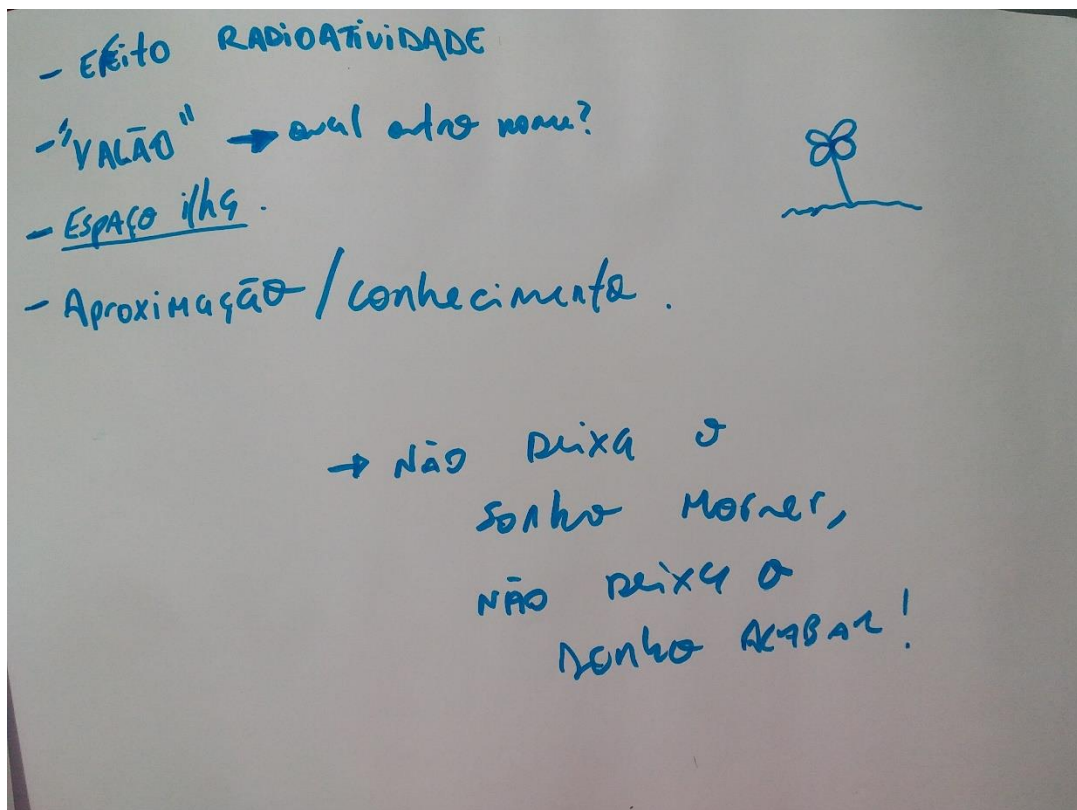 - EFEITO RADIOATIVIDADE
- "VALÃO" → qual outro nome?
- ESPAÇO ilha.
- Aproximação / conhecimento.
→ NÃO DEIXA O
SONHO MORRER,
NÃO DEIXA O
SONHO ACABAR!